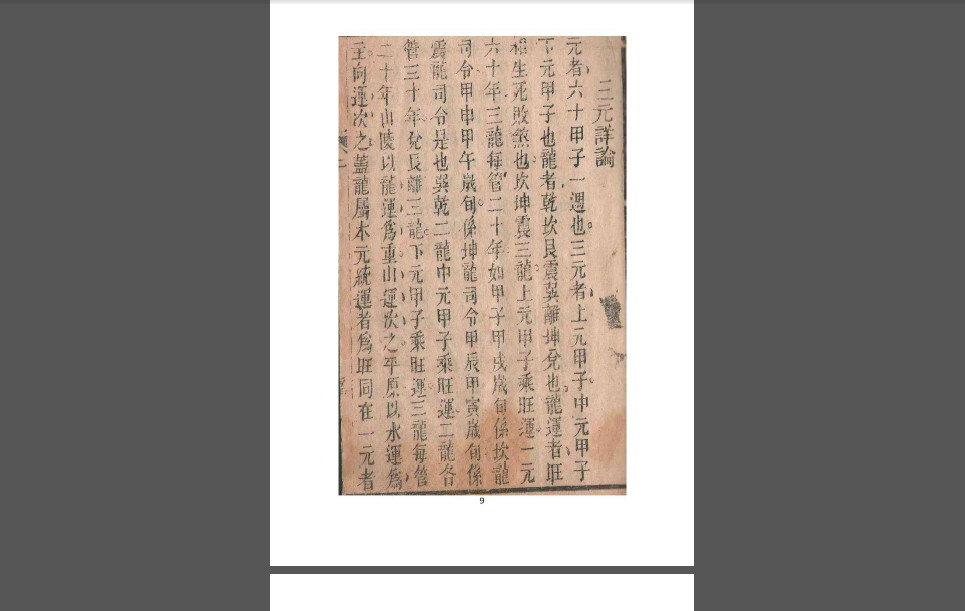 三元詳論
元者六十甲子一週也三元者上元甲子中元甲子
下元甲子也龍者乾坎艮震巽離坤兌也龍運者旺
相生死敗煞也坎坤震三龍上元甲子乘旺運一元
六十年三龍每管二十年如甲子甲戌歲旬係坎龍
司令甲申甲午歲旬係坤龍司令甲辰甲寅歲旬係
震龍司令是也巽乾二龍中元甲子乘旺運二龍各
管三十年兌艮離三龍下元甲子乘旺運三龍每管
二十年山陵以龍運為重山運次之平原以水運為
主向運次之蓋龍屬本元統運者為旺同在一元者
9